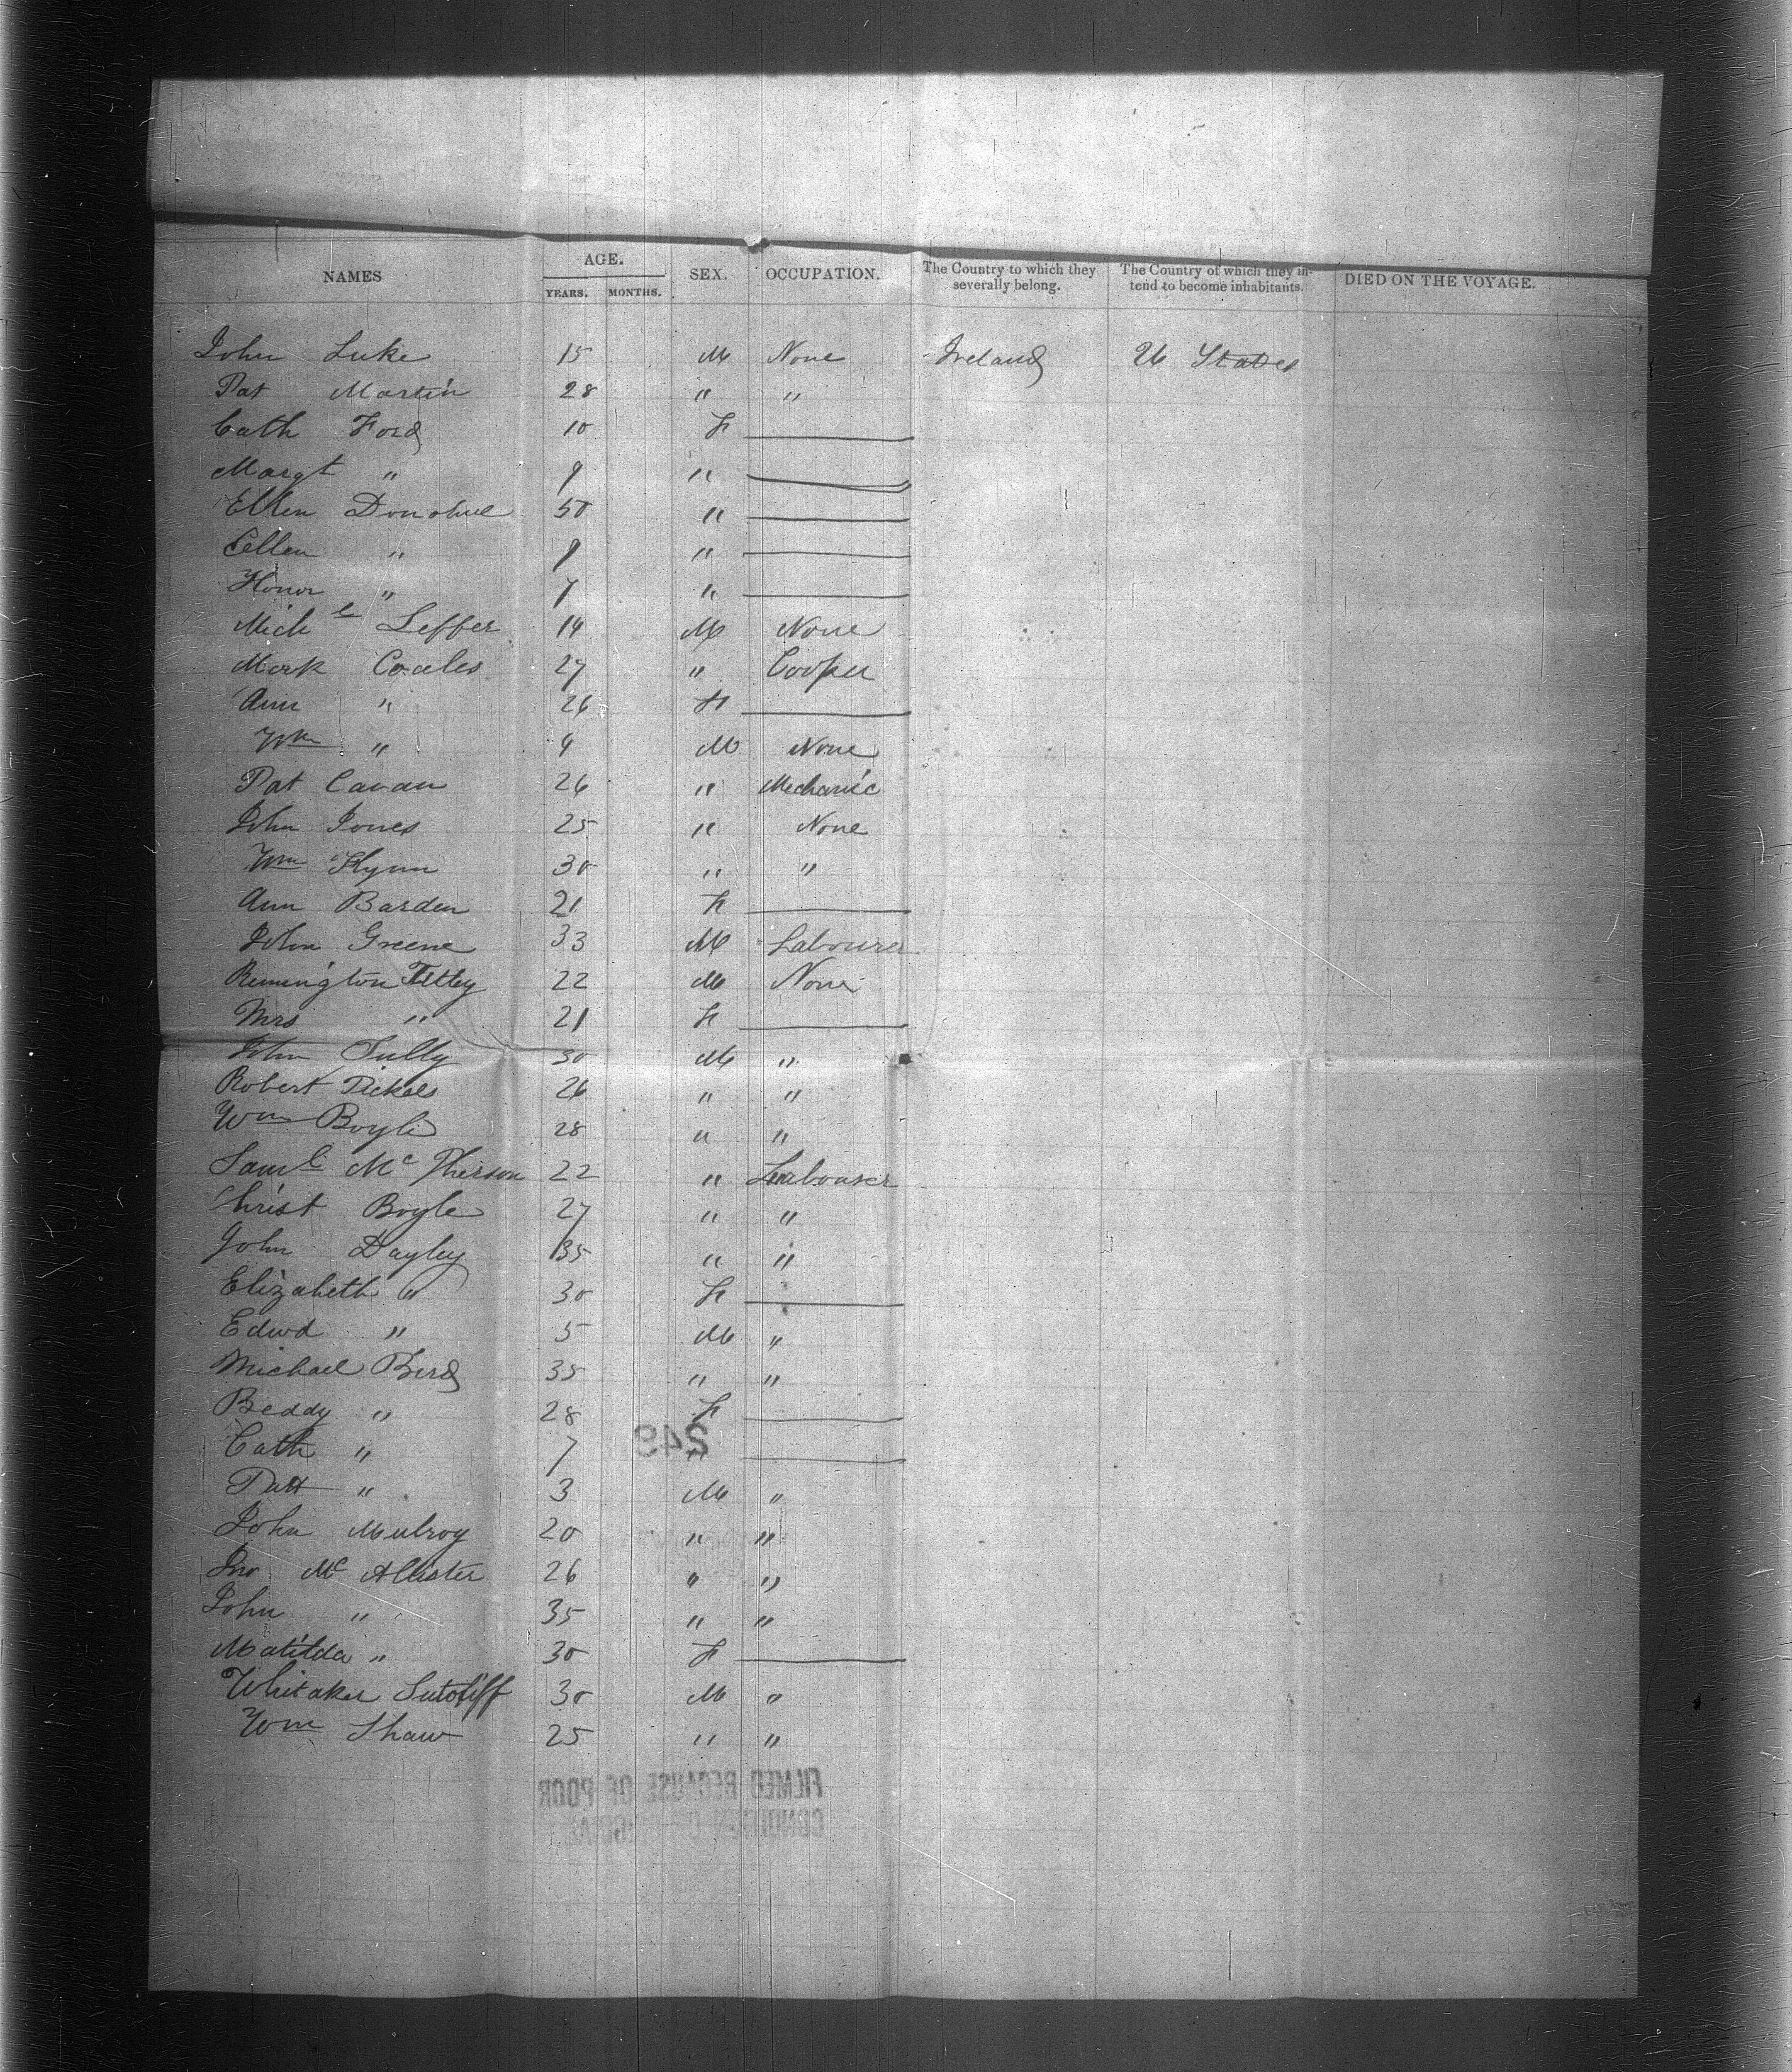 NAMES AGE. YEARS. MONTHS. SEX. OCCUPATION. The Country to which they severally belong. The Country of which they intend to become inhabitants. DIED ON THE VOYAGE.
John Luke 15 M None Ireland U States
Pat Martin 28 " "
Cath Ford 10 F
Margt " 9 "
Ellen Donohue 50 "
Cellen " 9 "
Honor " 7 "
Michl Leffer 14 M None
Mark Coales 27 " Cooper
Ann " 26 F
Wm " 4 M None
Pat Cavan 26 " Mechanic
John Jones 25 " None
Wm Flynn 30 " "
Ann Barden 21 F
John Greene 33 M Labourer
Remington Tilley 22 M None
Mrs " 21 F
John Tully 30 M "
Robert Pickles 26 " "
Wm Boyle 28 " "
Saml Mc Pherson 22 " Labourer
Christ Boyle 27 " "
John Dayley 35 " "
Elizabeth " 30 F
Edwd " 5 M "
Michael Bird 35 " "
Beddy " 28 F
Cath " 7 "
249
Patt " 3 M "
John Mulroy 20 " "
Jno Mc Alister 26 " "
John " 35 " "
Matilda " 30 F
Whitaker Sutcliff 30 M "
Wm Shaw 25 " "
FILMED BECAUSE OF POOR
CONDITION